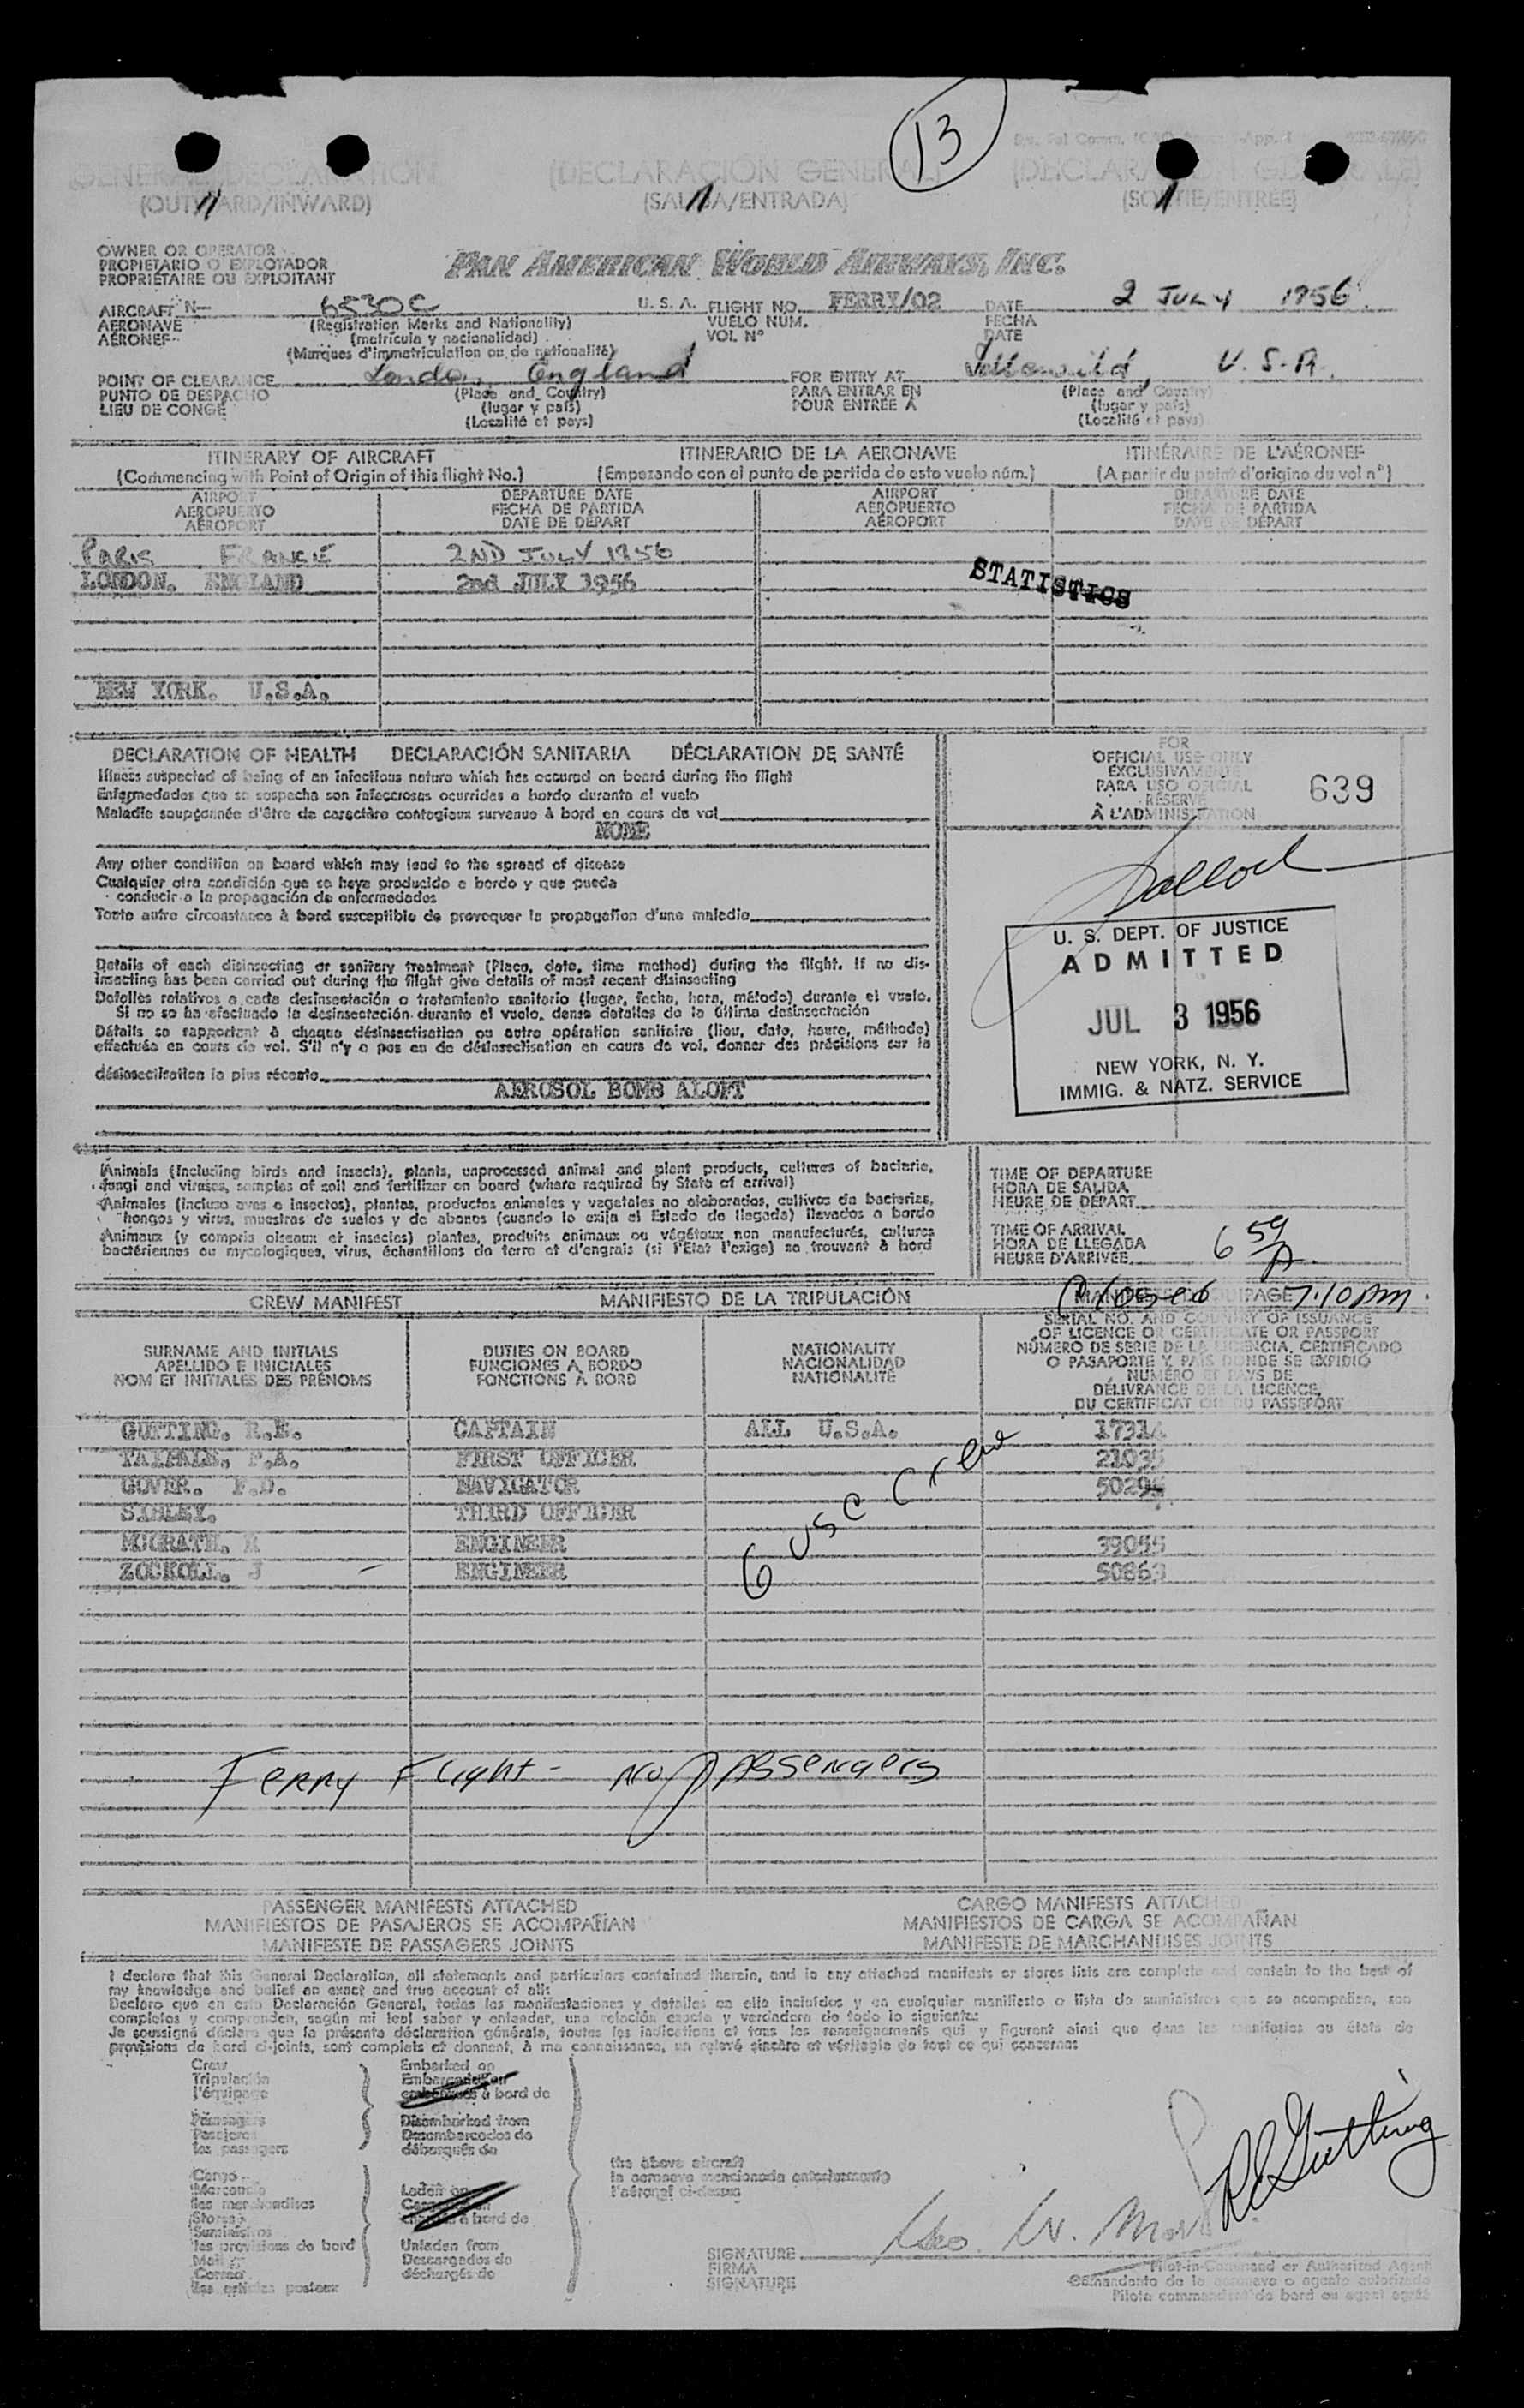 13
GENERAL DECLARATION (DECLARACIÓN GENERAL) (DÉCLARATION GÉNÉRALE)
(OUTWARD/INWARD) (SALIDA/ENTRADA) (SORTIE/ENTRÉE)
OWNER OR OPERATOR
PROPIETARIO O EXPLOTADOR
PROPRIÉTAIRE OU EXPLOITANT
PAN AMERICAN WORLD AIRWAYS, INC.
AIRCRAFT N- 6530C U. S. A. FLIGHT NO. FERRY/02 DATE 2 JULY 1956
AERONAVE (Registration Marks and Nationality) VUELO NUM. FECHA
AÉRONEF (matrícula y nacionalidad) VOL Nº DATE
(Marques d'immatriculation ou de nationalité)
POINT OF CLEARANCE London, England FOR ENTRY AT Idlewild, U.S.A.
PUNTO DE DESPACHO (Place and Country) PARA ENTRAR EN (Place and Country)
LIEU DE CONGÉ (lugar y país) POUR ENTRÉE A (lugar y país)
(Localité et pays) (Localité et pays)
ITINERARY OF AIRCRAFT ITINERARIO DE LA AERONAVE ITINÉRAIRE DE L'AÉRONEF
(Commencing with Point of Origin of this flight No.) (Empezando con el punto de partida de esto vuelo núm.) (A partir du point d'origine du vol n°)
AIRPORT DEPARTURE DATE AIRPORT DEPARTURE DATE
AEROPUERTO FECHA DE PARTIDA AEROPUERTO FECHA DE PARTIDA
AÉROPORT DATE DE DÉPART AÉROPORT DATE DE DÉPART
PARIS FRANCE 2ND JULY 1956
LONDON. ENGLAND 2nd JULY 1956
STATISTICS
NEW YORK. U.S.A.
DECLARATION OF HEALTH DECLARACIÓN SANITARIA DÉCLARATION DE SANTÉ
Illness suspected of being of an infectious nature which has occured on board during the flight
Enfermedades que se sospecha son infecciosas ocurridas a bordo durante el vuelo
Maladie soupçonnée d'être de caractère contagieux survenue à bord en cours de vol
NONE
Any other condition on board which may lead to the spread of disease
Cualquier otra condición que se haya producido a bordo y que pueda
conducir a la propagación de enfermedades
Toute autre circonstance à bord susceptible de provoquer la propagation d'une maladie
Details of each disinsecting or sanitary treatment (Place, date, time method) during the flight. If no dis-
insecting has been carried out during the flight give details of most recent disinsecting
Detalles relativos a cada desinsectación o tratamiento sanitario (lugar, fecha, hora, método) durante el vuelo.
Si no so ha efectuado la desinsectación durante el vuelo, dense detalles de la última desinsectación
Détails se rapportant à chaque désinsectisation ou autre opération sanitaire (lieu, date, heure, méthode)
effectuée en cours de vol. S'il n'y a pas eu de désinsectisation en cours de vol, donner des précisions sur la
désinsectisation la plus récente
AEROSOL BOMB ALOFT
FOR
OFFICIAL USE ONLY
EXCLUSIVAMENTE
PARA USO OFICIAL
RÉSERVÉ
À L'ADMINISTRATION
639
U. S. DEPT. OF JUSTICE
ADMITTED
JUL 3 1956
NEW YORK, N. Y.
IMMIG. & NATZ. SERVICE
Animals (Including birds and insects), plants, unprocessed animal and plant products, cultures of bacteria,
fungi and viruses, samples of soil and fertilizer on board (where required by State of arrival)
Animales (incluso aves o insectos), plantas, productos animales y vegetales no elaborados, cultivos de bacterias,
hongos y virus, muestras de suelos y de abonos (cuando lo exija el Estado de llegada) llevados a bordo
Animaux (y compris oiseaux et insectes) plantes, produits animaux ou végétaux non manufacturés, cultures
bactériennes ou mycologiques, virus, échantillons de terre et d'engrais (si l'Etat l'exige) se trouvant à bord
TIME OF DEPARTURE
HORA DE SALIDA
HEURE DE DÉPART
TIME OF ARRIVAL
HORA DE LLEGADA
HEURE D'ARRIVÉE
6 59 A
CREW MANIFEST MANIFIESTO DE LA TRIPULACIÓN
Closed 7:10 pm
SURNAME AND INITIALS DUTIES ON BOARD NATIONALITY SERIAL NO. AND COUNTRY OF ISSUANCE
APELLIDO E INICIALES FUNCIONES A BORDO NACIONALIDAD OF LICENCE OR CERTIFICATE OR PASSPORT
NOM ET INITIALES DES PRÉNOMS FONCTIONS À BORD NATIONALITÉ NÚMERO DE SERIE DE LA LICENCIA, CERTIFICADO
O PASAPORTE Y PAIS DONDE SE EXPIDIÓ
NUMÉRO ET PAYS DE
DÉLIVRANCE DE LA LICENCE,
DU CERTIFICAT OU DU PASSEPORT
GUTTING. R.E. CAPTAIN ALL U.S.A. 17314
F.A. FIRST OFFICER 21035
GOVER. F.D. NAVIGATOR 50294
SIBLEY. THIRD OFFICER
MCGRATH. ENGINEER 39055
ZOCKOLL. J ENGINEER 50863
6 USC Crew
Ferry Flight - No Passengers
PASSENGER MANIFESTS ATTACHED CARGO MANIFESTS ATTACHED
MANIFIESTOS DE PASAJEROS SE ACOMPAÑAN MANIFIESTOS DE CARGA SE ACOMPAÑAN
MANIFESTE DE PASSAGERS JOINTS MANIFESTE DE MARCHANDISES JOINTS
I declare that this General Declaration, all statements and particulars contained therein, and in any attached manifests or stores lists are complete and contain to the best of
my knowledge and belief an exact and true account of all:
Declaro que en esta Declaración General, todas las manifestaciones y detalles en ella incluídos y en cualquier manifiesto o lista de suministros que se acompañen, son
completos y comprenden, según mi leal saber y entender, una relación exacta y verdadera de todo lo siguiente:
Je soussigné déclare que la présente déclaration générale, toutes les indications et tous les renseignements qui y figurent ainsi que dans les manifestes ou états de
provisions de bord ci-joints, sont complets et donnent, à ma connaissance, un relevé sincère et véritable de tout ce qui concerne:
Crew Embarked on
Tripulación Embarcados en
l'équipage embarqués à bord de
Passengers Disembarked from
Pasajeros Desembarcados de
les passagers débarqués de
Cargo
Mercancía Laden on
les marchandises
Stores à bord de
Suministros
les provisions de bord Unladen from
Mail Descargados de
Correo déchargés de
les articles postaux
the above aircraft
la aeronave mencionada anteriormente
l'aéronef ci-dessus
R E Gutting
SIGNATURE
FIRMA
SIGNATURE
Pilot-in-Command or Authorized Agent
Comandante de la aeronave o agente autorizado
Pilote commandant de bord ou agent agréé